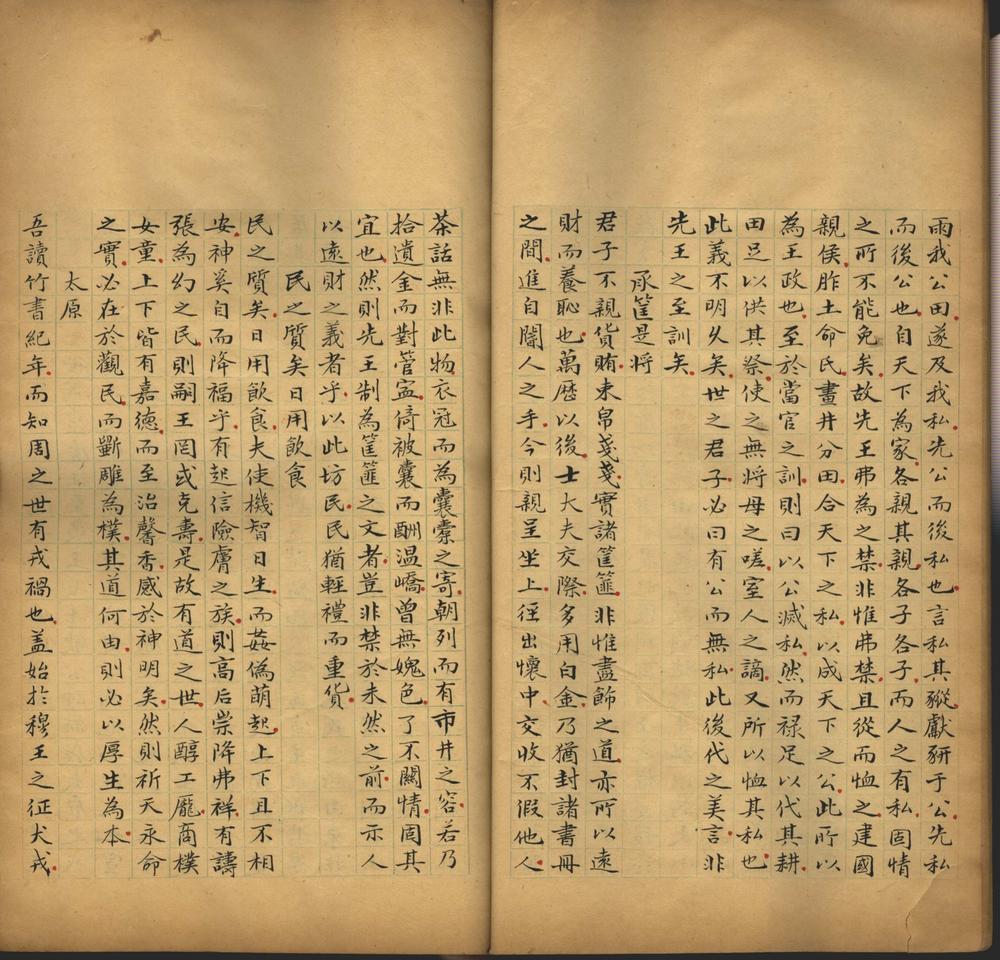 雨我公田遂及我私先公而後私也言私其豵獻豣于公先私
而後公也自天下為家各親其親各子各子而人之有私固情
之所不能免矣故先王弗為之禁非惟弗禁且從而恤之建國
親侯胙土命氏畫井分田合天下之私以成天下之公此所以
為王政也至於當官之訓則曰以公滅私然而祿足以代其耕
田足以供其祭使之無將母之嗟室人之謫又所以恤其私也
此義不明久矣世之君子必曰有公而無私此後代之美言非
先王之至訓矣
承筐是將
君子不親貨賄束帛戔戔實諸筐篚非惟盡飾之道亦所以遠
財而養恥也萬歷以後士大夫交際多用白金乃猶封諸書冊
之間進自閽人之手今則親呈坐上徑出懷中交收不假他人
茶話無非此物衣冠而為囊橐之寄朝列而有市井之容若乃
拾遺金而對管寧倚被囊而酬温嶠曾無媿色了不關情固其
宜也然則先王制為筐篚之文者豈非禁於未然之前而示人
以遠財之義者乎以此坊民民猶輕禮而重貨
民之質矣日用飲食
民之質矣日用飲食夫使機智日生而姦偽萌起上下且不相
安神奚自而降福乎有起信險膚之族則高后崇降弗祥有譸
張為幻之民則嗣王罔或克壽是故有道之世人醇工龎商樸
女童上下皆有嘉德而至治馨香感於神明矣然則祈天永命
之實必在於觀民而斵雕為樸其道何由則必以厚生為本
太原
吾讀竹書紀年而知周之世有戎禍也盖始於穆王之征犬戎